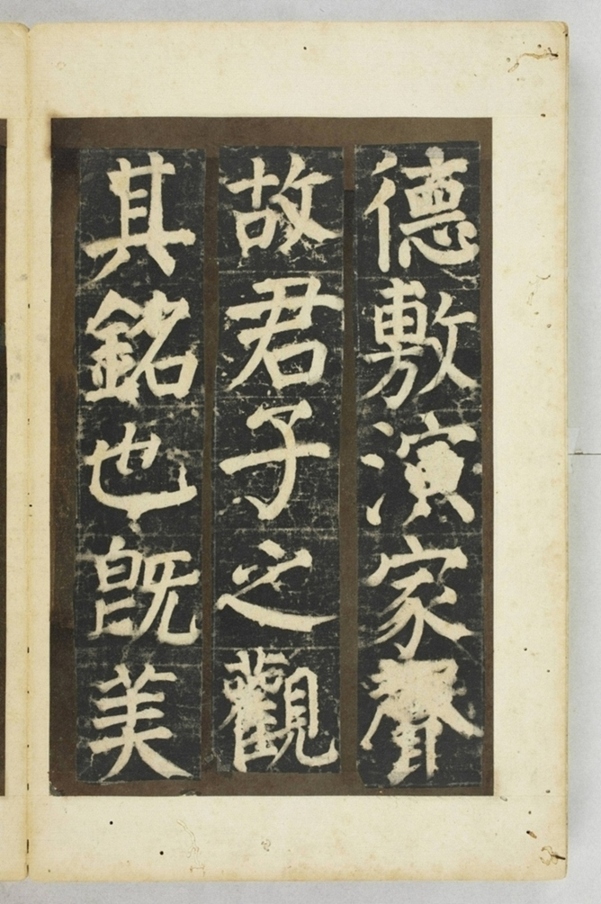 德敷演家聲
故君子之觀
其銘也既美